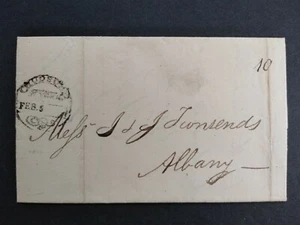 10
FEB. 5
Messrs I & J Townsends
Albany